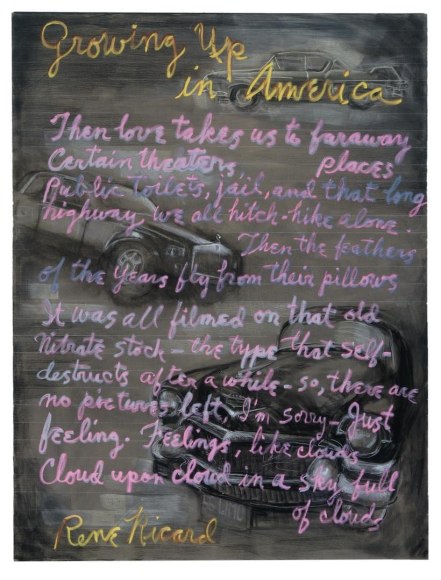 Growing Up
in America
Then love takes us to faraway
Certain theaters places
Public toilets, jail, and that long
highway we all hitch-hike alone.
Then the feathers
of the years fly from their pillows
It was all filmed on that old
Nitrate stock — the type that self-
destructs after a while - so, there are
no pictures left, I'm sorry - Just
feeling. Feelings, like clouds
Cloud upon cloud in a sky full
of clouds
Rene Ricard